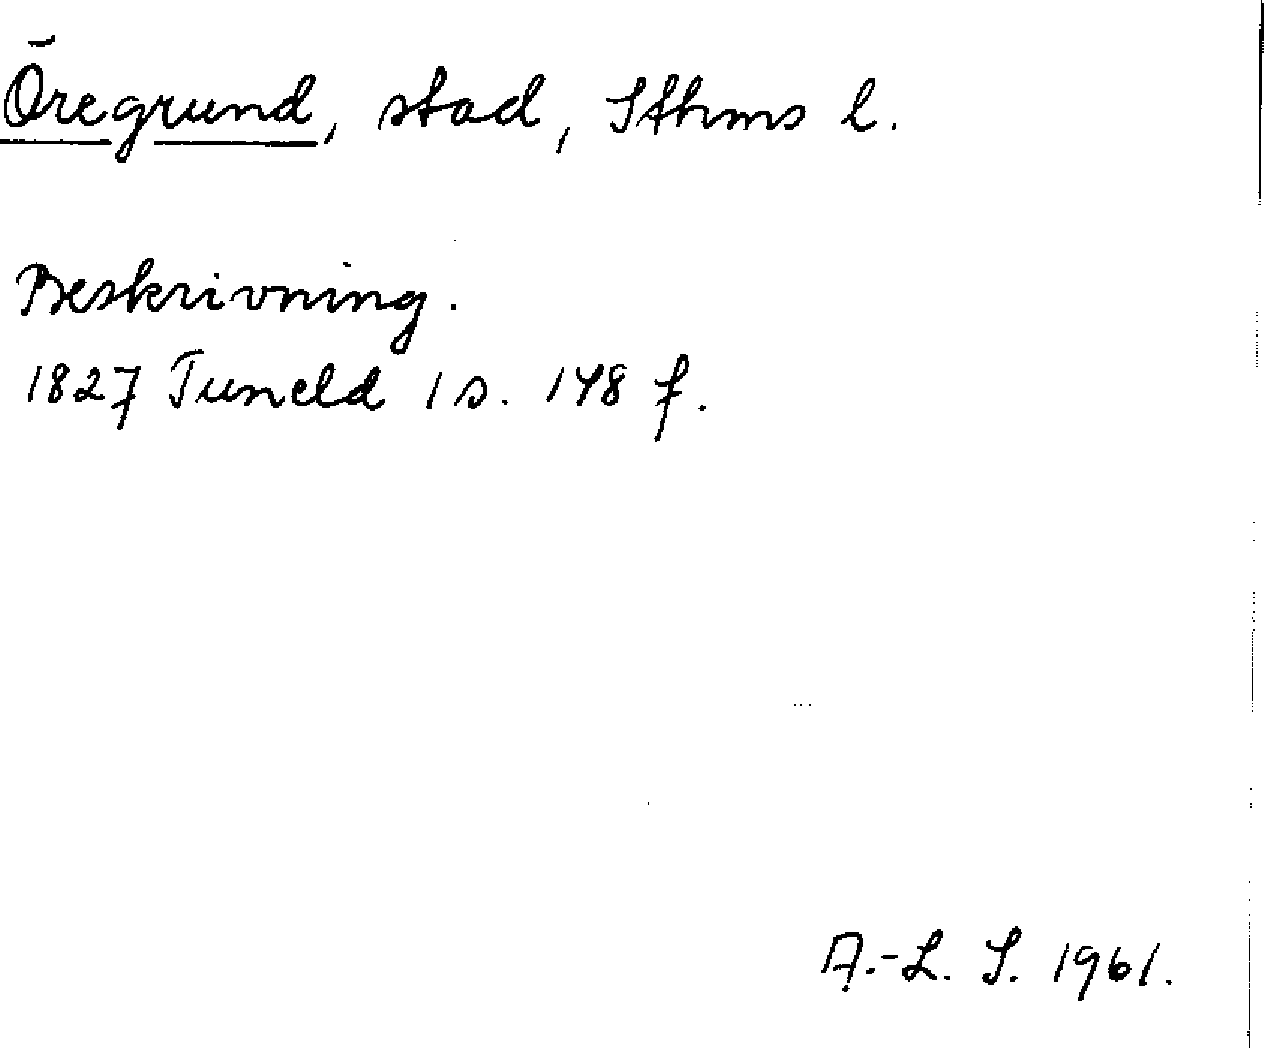 Öregrund, stad, Sthms l.
Beskrivning.
1827 Tuneld 1 s. 148 f.
A.-L. S. 1961.